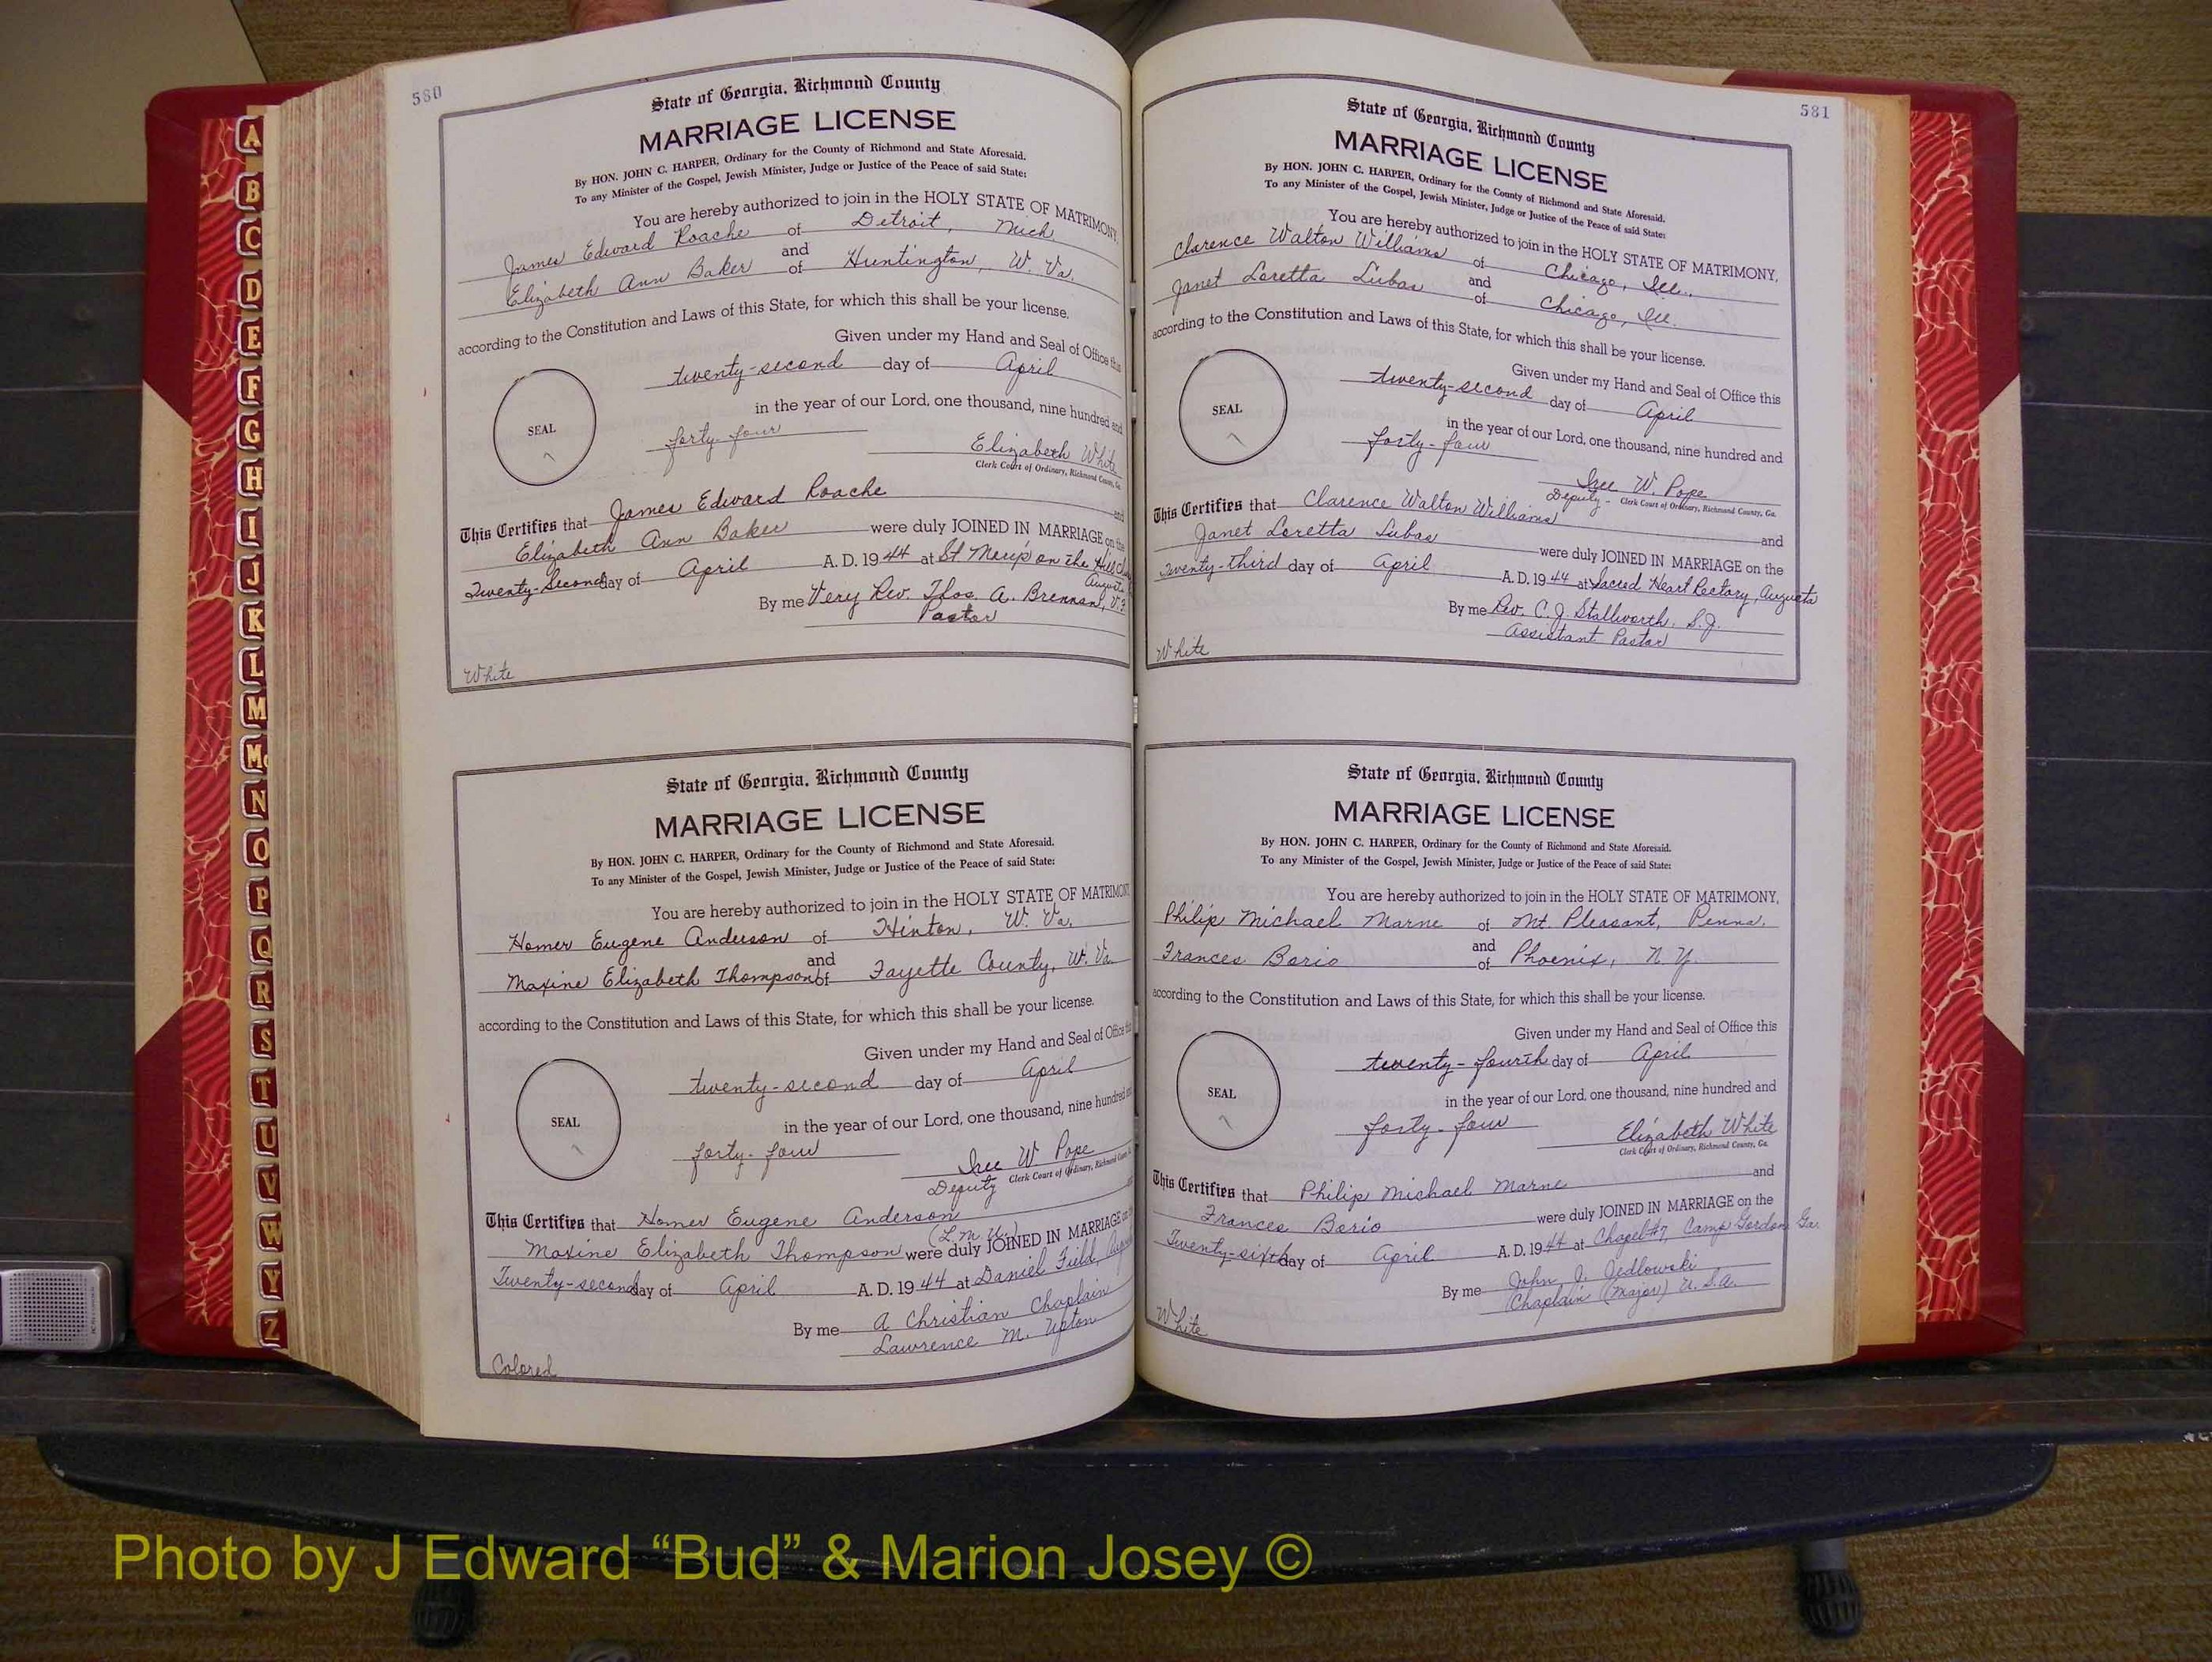 580
State of Georgia, Richmond County
MARRIAGE LICENSE
By HON. JOHN C. HARPER, Ordinary for the County of Richmond and State Aforesaid.
To any Minister of the Gospel, Jewish Minister, Judge or Justice of the Peace of said State:
You are hereby authorized to join in the HOLY STATE OF MATRIMONY,
James Edward Roache of Detroit, Mich.
and
Elizabeth Ann Baker of Huntington, W. Va.
according to the Constitution and Laws of this State, for which this shall be your license.
Given under my Hand and Seal of Office this
twenty-second day of April
in the year of our Lord, one thousand, nine hundred and
SEAL
forty-four
Elizabeth White
Clerk Court of Ordinary, Richmond County, Ga.
This Certifies that James Edward Roache and
Elizabeth Ann Baker were duly JOINED IN MARRIAGE on the
Twenty-Second day of April A. D. 19 44 at St. Mary's on the Hill
Augusta
By me Very Rev. Thos. A. Brennan, V.F.
Pastor
White
State of Georgia, Richmond County
MARRIAGE LICENSE
By HON. JOHN C. HARPER, Ordinary for the County of Richmond and State Aforesaid.
To any Minister of the Gospel, Jewish Minister, Judge or Justice of the Peace of said State:
You are hereby authorized to join in the HOLY STATE OF MATRIMONY
Homer Eugene Anderson of Hinton, W. Va.
and
Maxine Elizabeth Thompson of Fayette County, W. Va.
according to the Constitution and Laws of this State, for which this shall be your license.
Given under my Hand and Seal of Office this
twenty-second day of April
in the year of our Lord, one thousand, nine hundred and
SEAL
forty-four
Inee W. Pope
Deputy Clerk Court of Ordinary, Richmond County
This Certifies that Homer Eugene Anderson
(L.M.U.)
Maxine Elizabeth Thompson were duly JOINED IN MARRIAGE on the
Twenty-second day of April A. D. 19 44 at Daniel Field,
By me A Christian Chaplain
Lawrence M. Upton
Colored
581
State of Georgia, Richmond County
MARRIAGE LICENSE
By HON. JOHN C. HARPER, Ordinary for the County of Richmond and State Aforesaid.
To any Minister of the Gospel, Jewish Minister, Judge or Justice of the Peace of said State:
You are hereby authorized to join in the HOLY STATE OF MATRIMONY,
Clarence Walton Williams of Chicago, Ill.
and
Janet Loretta Lubas of Chicago, Ill.
according to the Constitution and Laws of this State, for which this shall be your license.
Given under my Hand and Seal of Office this
twenty-second day of April
in the year of our Lord, one thousand, nine hundred and
SEAL
forty-four
Inee W. Pope
Deputy - Clerk Court of Ordinary, Richmond County, Ga.
This Certifies that Clarence Walton Williams
and
Janet Loretta Lubas were duly JOINED IN MARRIAGE on the
Twenty-third day of April A. D. 19 44 at Sacred Heart Rectory, Augusta
By me Rev. C. J. Stallworth, S.J.
Assistant Pastor
White
State of Georgia, Richmond County
MARRIAGE LICENSE
By HON. JOHN C. HARPER, Ordinary for the County of Richmond and State Aforesaid.
To any Minister of the Gospel, Jewish Minister, Judge or Justice of the Peace of said State:
You are hereby authorized to join in the HOLY STATE OF MATRIMONY,
Philip Michael Marne of Mt. Pleasant, Penna.
and
Frances Borio of Phoenix, N.Y.
according to the Constitution and Laws of this State, for which this shall be your license.
Given under my Hand and Seal of Office this
twenty-fourth day of April
in the year of our Lord, one thousand, nine hundred and
SEAL
forty-four
Elizabeth White
Clerk Court of Ordinary, Richmond County, Ga.
This Certifies that Philip Michael Marne and
Frances Borio were duly JOINED IN MARRIAGE on the
Twenty-sixth day of April A. D. 19 44 at Chapel #7, Camp Gordon, Ga.
By me John J. Jedlowski
Chaplain (Major) U.S.A.
White
A
B
C
D
E
F
G
H
I
J
K
L
M
Mc
N
O
P
Q
R
S
T
U
V
W
Y
Z
Photo by J Edward “Bud” & Marion Josey ©